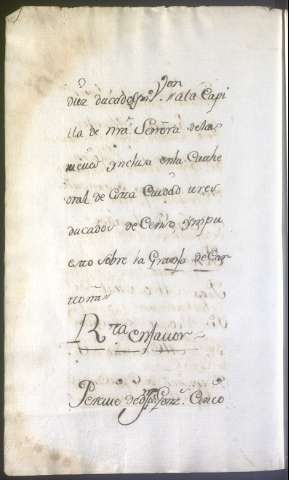 diez ducados
a la Capi
lla de nrã Señora de las
nieues ynclusa en la Cathe
dral de esta Ciudad y tres
ducados de Censo ympu
esto sobre la Granja de
Rta en fauor
Perciue de Cinco